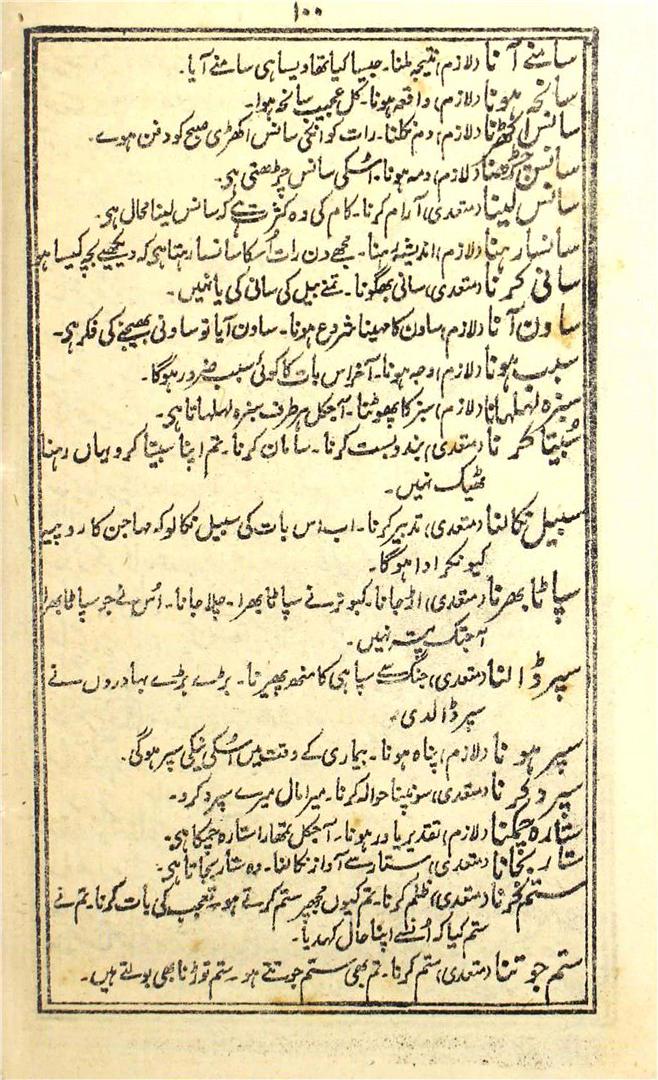 ۱۰۰
سامنے آنا (لازم) نتیجہ ملنا۔ جیسا کیا تھا ویسا ہی سامنے آیا۔
سانحہ ہونا (لازم) واقعہ ہونا۔ کل عجیب سانحہ ہوا۔
سانس اکھڑنا (لازم) دم نکلنا۔ رات کو انکی سانس اکھڑی صبح کو دفن ہوے۔
سانس چڑھنا (لازم) دمہ ہونا۔ اُسکی سانس چڑھتی ہی۔
سانس لینا (متعدی) آرام کرنا۔ کام کی وہ کثرت ہے کہ سانس لینا محال ہی۔
سانسا رہنا (لازم) اندیشہ رہنا۔ مجھے دن رات اُسکا سانسا رہتا ہی کہ دیکھیے بچہ کیسا ہو
سانی کرنا (متعدی) سانی بھگونا۔ تمنے بیل کی سانی کی یا نہیں۔
ساون آنا (لازم) ساون کا مہینا شروع ہونا۔ ساون آیا تو ساونی بھیجنے کی فکر ہی۔
سبب ہونا (لازم) وجہ ہونا۔ آخر اس بات کا کوئی سبب ضرور ہوگا۔
سبزہ لہلہانا (لازم) سبزکا پھوٹنا۔ آجکل ہر طرف سبزہ لہلہاتا ہی۔
سُبیتا کرنا (متعدی) بندوبست کرنا۔ سامان کرنا۔ تم اپنا سبیتا کرو یہاں رہنا
ٹھیک نہیں۔
سبیل نکالنا (متعدی) تدبیر کرنا۔ اب اس بات کی سبیل نکالو کہ مہاجن کا روپیہ
کیونکر ادا ہوگا۔
سپاٹا بھرنا (متعدی) اڑ جانا۔ کبوتر نے سپاٹا بھرا۔ چلا جانا۔ اُس نے جو سپاٹا بھرا
آجتک پتہ نہیں۔
سپر ڈالنا (متعدی) جنگ سے سپاہی کا منھ پھیرنا۔ بڑے بڑے بہادروں نے
سپر ڈالدی۔
سپر ہونا (لازم) پناہ ہونا۔ بیماری کے وقت میں اُسکی نیکی سپر ہوگی۔
سپرد کرنا (متعدی) سونپنا حوالہ کرنا۔ میرا مال میرے سپرد کرو۔
ستارہ چمکنا (لازم) تقدیر یاور ہونا۔ آجکل تمھارا ستارہ چمکا ہی۔
ستار بجانا (متعدی) ستار سے آواز نکالنا۔ وہ ستار بجاتا ہی۔
ستم کرنا (متعدی) ظلم کرنا۔ تم کیوں مجھپر ستم کرتے ہو۔ تعجب کی بات کرنا۔ تم نے
ستم کیا کہ اُنسے اپنا حال کہدیا۔
ستم جوتنا (متعدی) ستم کرنا۔ تم بھی ستم جوتتے ہو۔ ستم توڑنا بھی بولتے ہیں۔